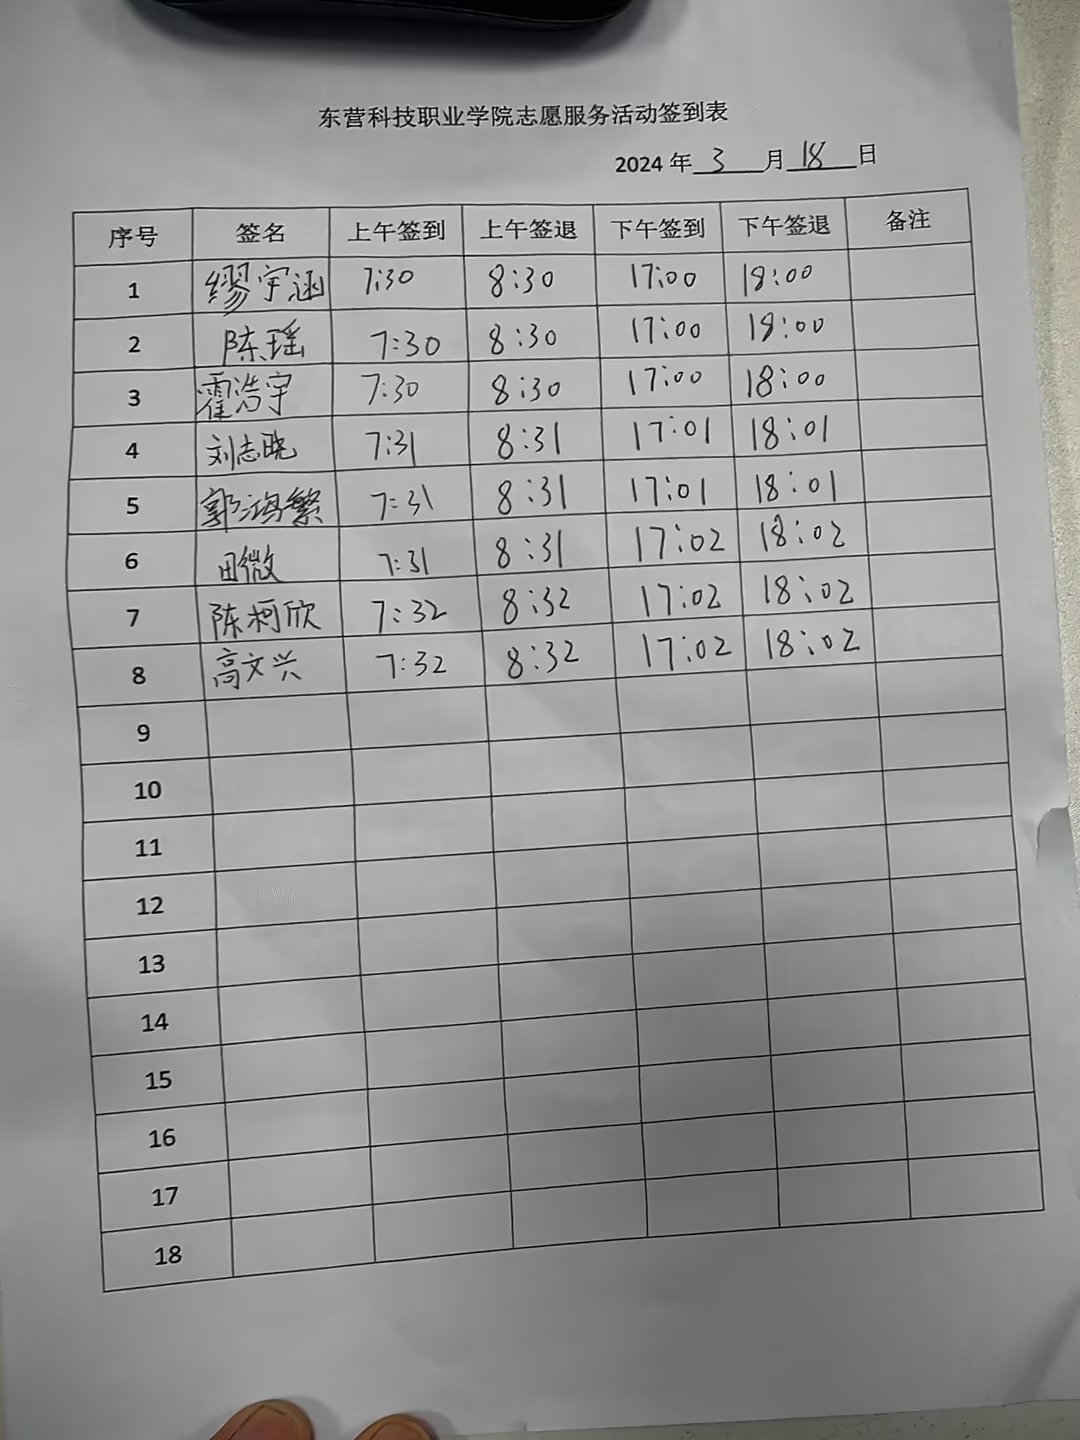 东营科技职业学院志愿服务活动签到表
2024 年 3 月 18 日
序号 签名 上午签到 上午签退 下午签到 下午签退 备注
1 缪宇涵 7:30 8:30 17:00 18:00
2 陈瑶 7:30 8:30 17:00 18:00
3 霍浩宇 7:30 8:30 17:00 18:00
4 刘志晓 7:31 8:31 17:01 18:01
5 郭鸿繁 7:31 8:31 17:01 18:01
6 田微 7:31 8:31 17:02 18:02
7 陈柯欣 7:32 8:32 17:02 18:02
8 高文兴 7:32 8:32 17:02 18:02
9
10
11
12
13
14
15
16
17
18